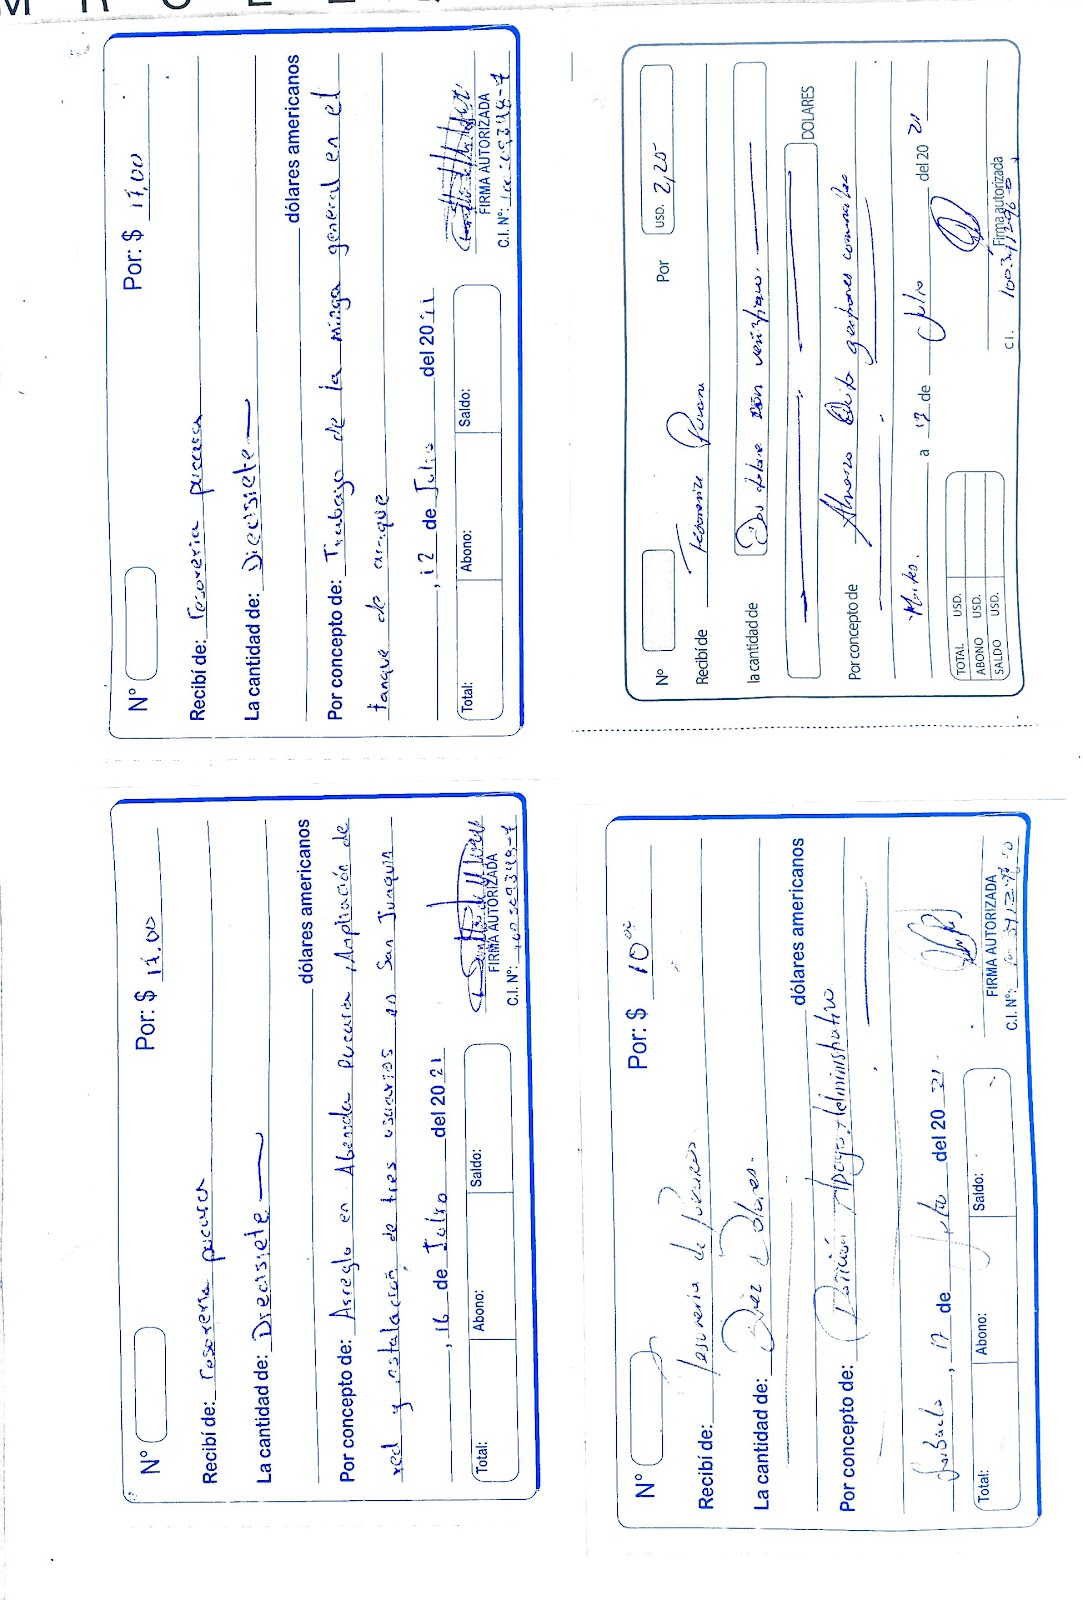 N° Por: $ 17,00
Recibí de: Tesoreria pucara
La cantidad de: Diecisiete
dólares americanos
Por concepto de: Trabajo de la minga general en el
tanque de
, 12 de Julio del 20
Total: Abono: Saldo:
FIRMA AUTORIZADA
C.I. N°:
N° Por USD. 2,25
Recibí de Tesoreria Pucara
la cantidad de Dos dolares con veinticinco.
DOLARES
Por concepto de Almuerzo Quito gestiones comunales
a de Julio del 20 21
TOTAL USD.
ABONO USD.
SALDO USD.
Firma autorizada
C.I.
N° Por: $ 17.00
Recibí de: Tesoreria pucara
La cantidad de: Diecisiete
dólares americanos
Por concepto de: Arreglo en Abenida Pucara, Ampliación de
red y instalación de tres usuarios en San Juaquin
, 16 de Julio del 20 21
Total: Abono: Saldo:
FIRMA AUTORIZADA
C.I. N°:
N° Por: $ 10
Recibí de: Tesoreria de Pucara.
La cantidad de: Diez Dolares.
dólares americanos
Por concepto de: Apoyo Administrativo
, 17 de Julio del 20 21.
Total: Abono: Saldo:
FIRMA AUTORIZADA
C.I. N°: